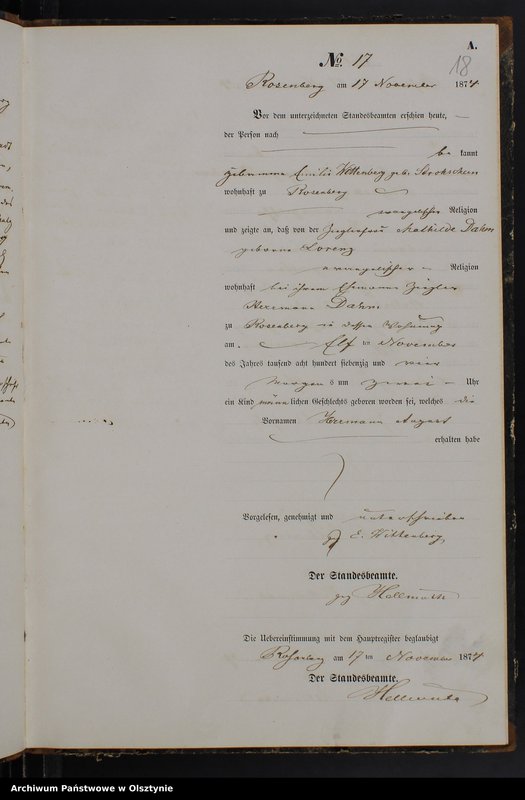 A.
No. 17
18
Rosenberg am 17 November 1874
Vor dem unterzeichneten Standesbeamten erschien heute,
der Person nach
be kannt
Emilie Wittenberg geb.
wohnhaft zu Rosenberg
evangelischer Religion
und zeigte an, daß von der Zieglerfrau Mathilde Dahm
geborne Lorenz
evangelischer Religion
wohnhaft bei ihrem Ehemanne Ziegler
Hermann Dahm
zu Rosenberg in dessen Wohnung
am Elf ten November
des Jahres tausend acht hundert siebenzig und vier
Morgens um zwei Uhr
ein Kind männlichen Geschlechts geboren worden sei, welches die
Vornamen Hermann August
erhalten habe
Vorgelesen, genehmigt und unterschrieben
gez E. Wittenberg,
Der Standesbeamte.
gez Hellmuth
Die Uebereinstimmung mit dem Hauptregister beglaubigt
Rosenberg am 17 ten November 1874
Der Standesbeamte.
Hellmuth
Archiwum Państwowe w Olsztynie